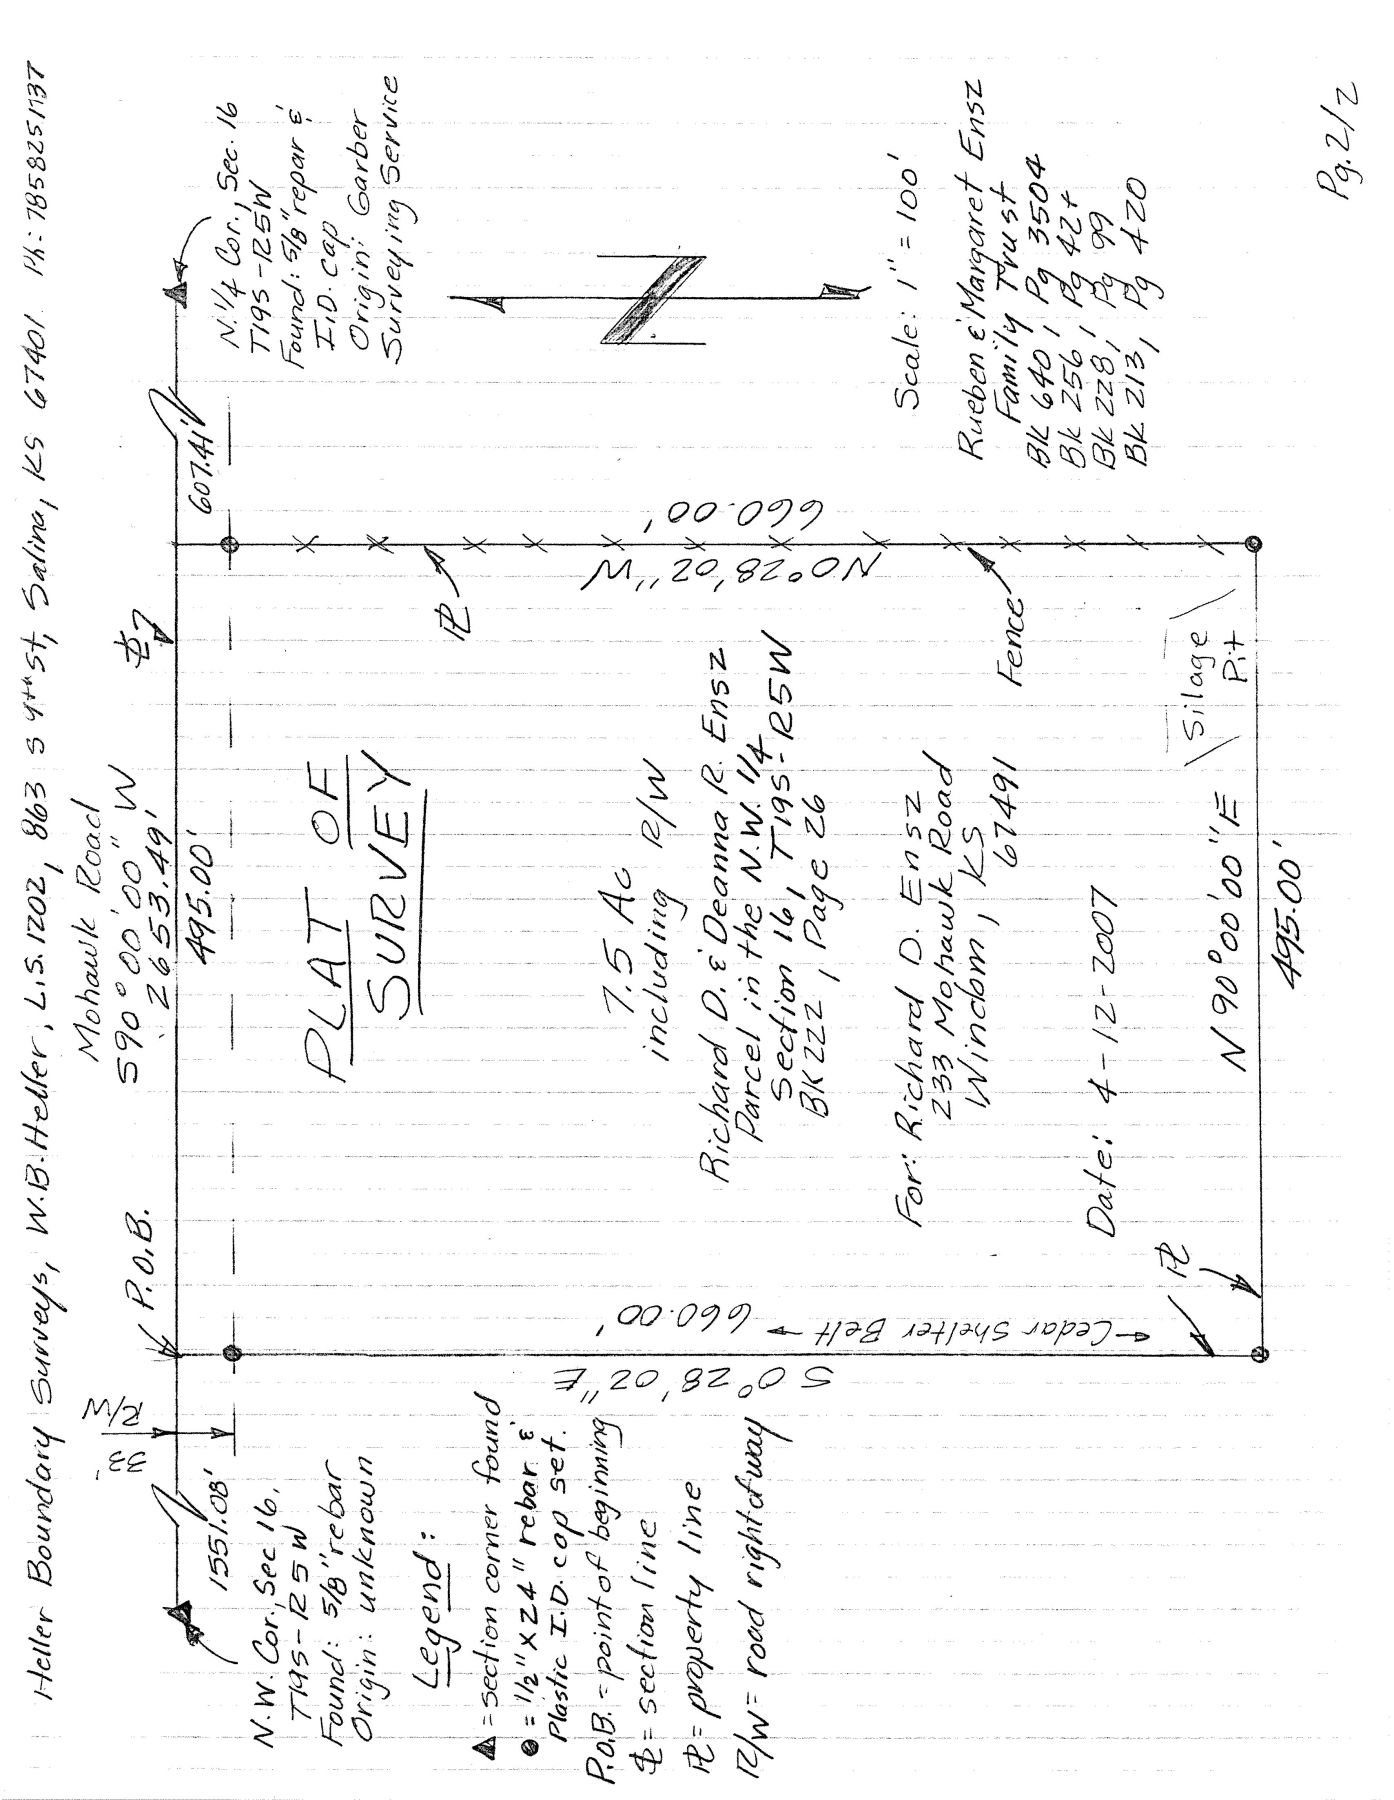 Heller Boundary Surveys, W.B. Heller, L.S. 1202, 863 S 9th St, Salina, KS 67401 Ph: 785 825 1737
Mohawk Road
S 90° 00' 00" W
2653.49'
33'
R/W
P.O.B.
1551.08'
495.00'
607.41'
N.W. Cor., Sec 16,
T19S-R5W
Found: 5/8" rebar
Origin: unknown
N. 1/4 Cor., Sec. 16
T19S-R5W
Found: 5/8" repar &
I.D. cap
Origin: Garber
Surveying Service
PLAT OF
SURVEY
Legend:
▲ = section corner found
● = 1/2" X 24" rebar &
Plastic I.D. cap set.
P.O.B. = point of beginning
SL = section line
PL = property line
R/W = road right of way
S 0° 28' 02" E
660.00'
← Cedar Shelter Belt →
7.5 Ac
including R/W
Richard D. & Deanna R. Ensz
Parcel in the N.W. 1/4
Section 16, T19S-R5W
BK 222, Page 26
For: Richard D. Ensz
233 Mohawk Road
Windom, KS
67491
Date: 4-12-2007
PL
N 0° 28' 02" W
660.00'
PL
Fence
Silage
Pit
N 90° 00' 00" E
495.00'
N
Scale: 1" = 100'
Rueben & Margaret Ensz
Family Trust
BK 640, Pg 3504
BK 256, Pg 42+
BK 228, Pg 99
BK 213, Pg 420
Pg. 2/2